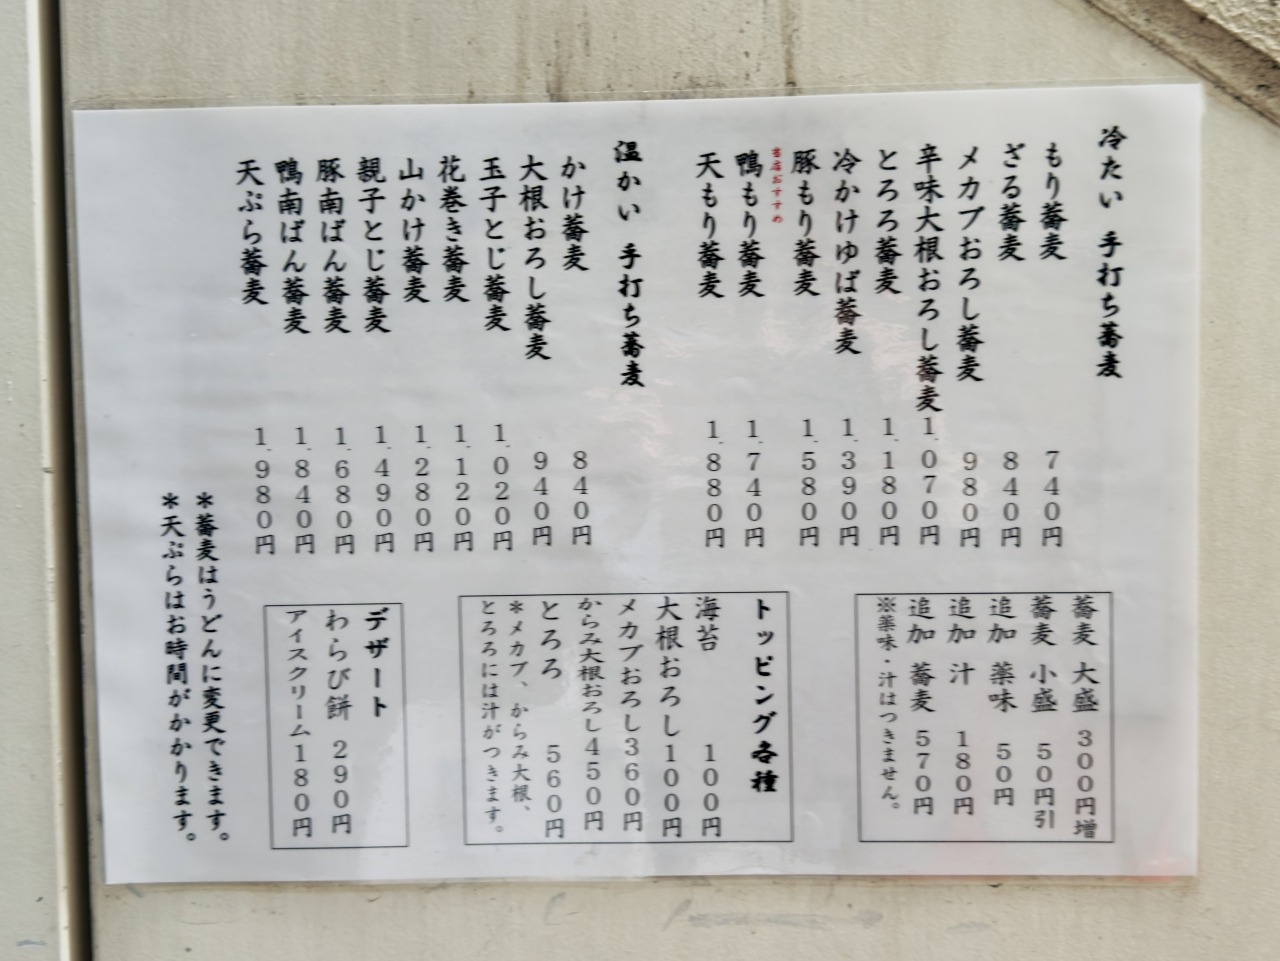 冷たい 手打ち蕎麦
もり蕎麦 740円
ざる蕎麦 840円
メカブおろし蕎麦 980円
辛味大根おろし蕎麦 1.070円
とろろ蕎麦 1.180円
冷かけゆば蕎麦 1.390円
豚もり蕎麦 1.580円
当店おすすめ
鴨もり蕎麦 1.740円
天もり蕎麦 1.880円
温かい 手打ち蕎麦
かけ蕎麦 840円
大根おろし蕎麦 940円
玉子とじ蕎麦 1.020円
花巻き蕎麦 1.120円
山かけ蕎麦 1.280円
親子とじ蕎麦 1.490円
豚南ばん蕎麦 1.680円
鴨南ばん蕎麦 1.840円
天ぷら蕎麦 1.980円
蕎麦 大盛 300円増
蕎麦 小盛 50円引
追加 薬味 50円
追加 汁 180円
追加 蕎麦 570円
※薬味・汁はつきません。
トッピング各種
海苔 100円
大根おろし100円
メカブおろし360円
からみ大根おろし450円
とろろ 560円
*メカブ、からみ大根、
とろろには汁がつきます。
デザート
わらび餅 290円
アイスクリーム180円
*蕎麦はうどんに変更できます。
*天ぷらはお時間がかかります。